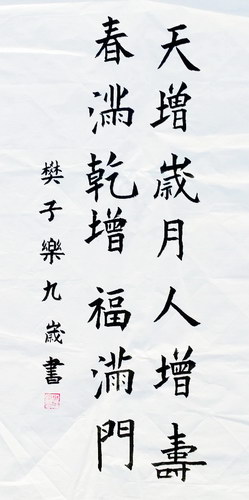 天增歲月人增壽
春滿乾增福滿門
樊子樂九歲書